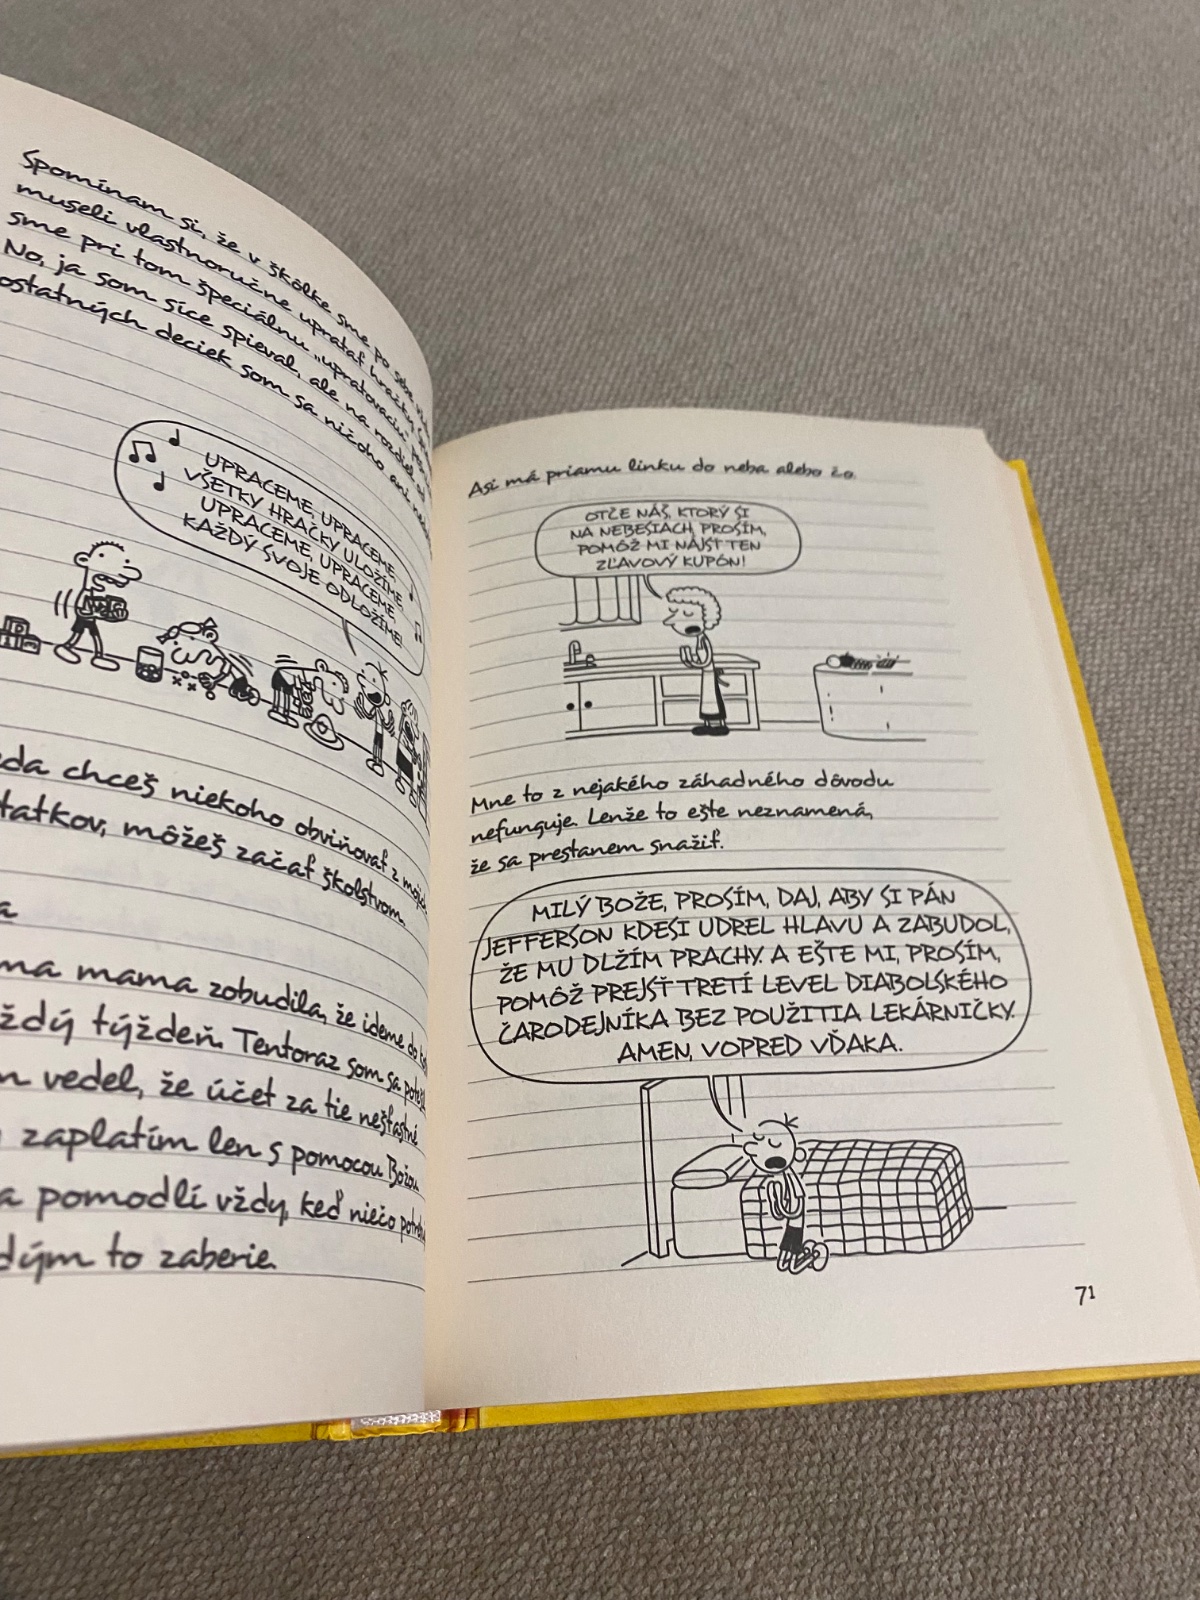 Spomínam si, že v škôlke sme po sebe
museli vlastnoručne upratať hračky.
sme pri tom špeciálnu „upratovaciu"
No, ja som síce spieval, ale na rozdiel od
ostatných deciek som sa ničoho ani
UPRACEME, UPRACEME,
VŠETKY HRAČKY ULOŽÍME,
UPRACEME, UPRACEME,
KAŽDÝ SVOJE ODLOŽÍME!
chceš niekoho obviňovať z
môžeš začať školstvom.
mama zobudila, že ideme do
týždeň. Tentoraz som sa
vedel, že účet za tie nešťastné
zaplatím len s pomocou Božou
pomodlí vždy, keď niečo
to zaberie.
Asi má priamu linku do neba alebo čo.
OTČE NÁŠ, KTORÝ SI
NA NEBESIACH, PROSÍM,
POMÔŽ MI NÁJSŤ TEN
ZĽAVOVÝ KUPÓN!
Mne to z nejakého záhadného dôvodu
nefunguje. Lenže to ešte neznamená,
že sa prestanem snažiť.
MILÝ BOŽE, PROSÍM, DAJ, ABY SI PÁN
JEFFERSON KDESI UDREL HLAVU A ZABUDOL,
ŽE MU DLŽÍM PRACHY. A EŠTE MI, PROSÍM,
POMÔŽ PREJSŤ TRETÍ LEVEL DIABOLSKÉHO
ČARODEJNÍKA BEZ POUŽITIA LEKÁRNIČKY.
AMEN, VOPRED VĎAKA.
71